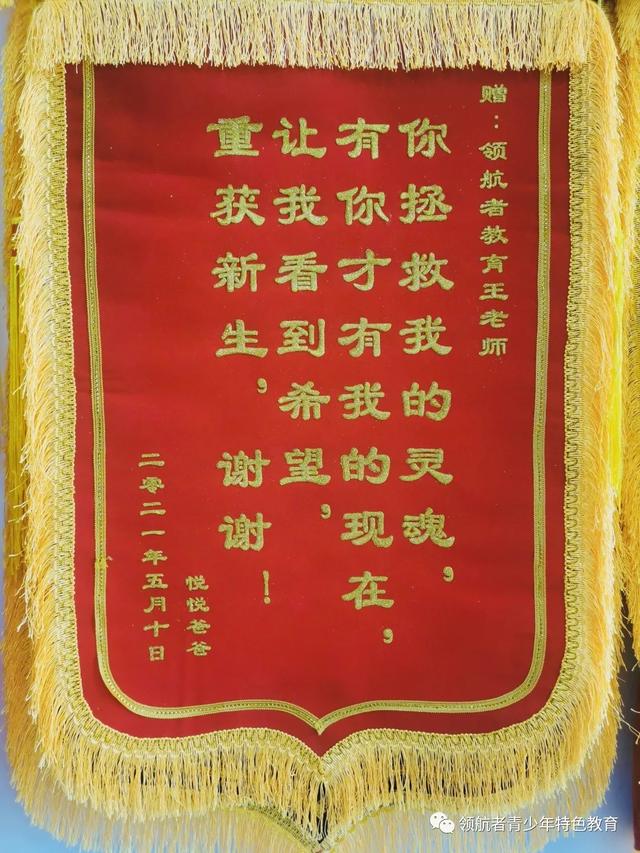 赠：领航者教育王老师
你拯救我的灵魂，
有你才有我的现在，
让我看到希望，
重获新生，谢谢！
悦悦爸爸
二零二一年五月十日
领航者青少年特色教育